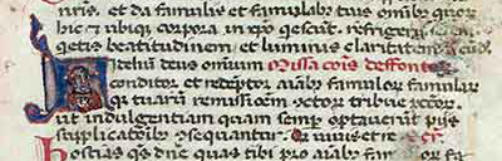 nris. et da famulis et famulab; tuis omib; quor
hic et ubiq; corpora in xpo qescut. refrigerii
qetis beatitudinem et luminis claritatem
idelium deus omnium Missa cois deffontor
conditor et redeptor aiab; famulor famular
q; tuaru remissioem
tribue
ut indulgentiam quam semp optaverut pijs
supplicatoib; ɔsequantur. Q vivis et re
hostias qs dne quas tibi pro aiab; fam